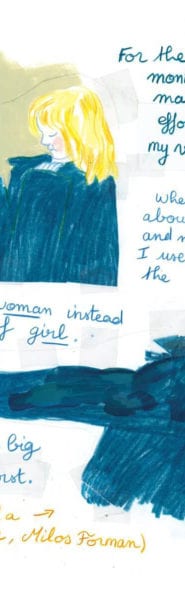 For the
mon
ma
effo
my v
whe
abou
and n
I use
the
woman instead
f girl.
big
rst.
a →
, Milos Forman)